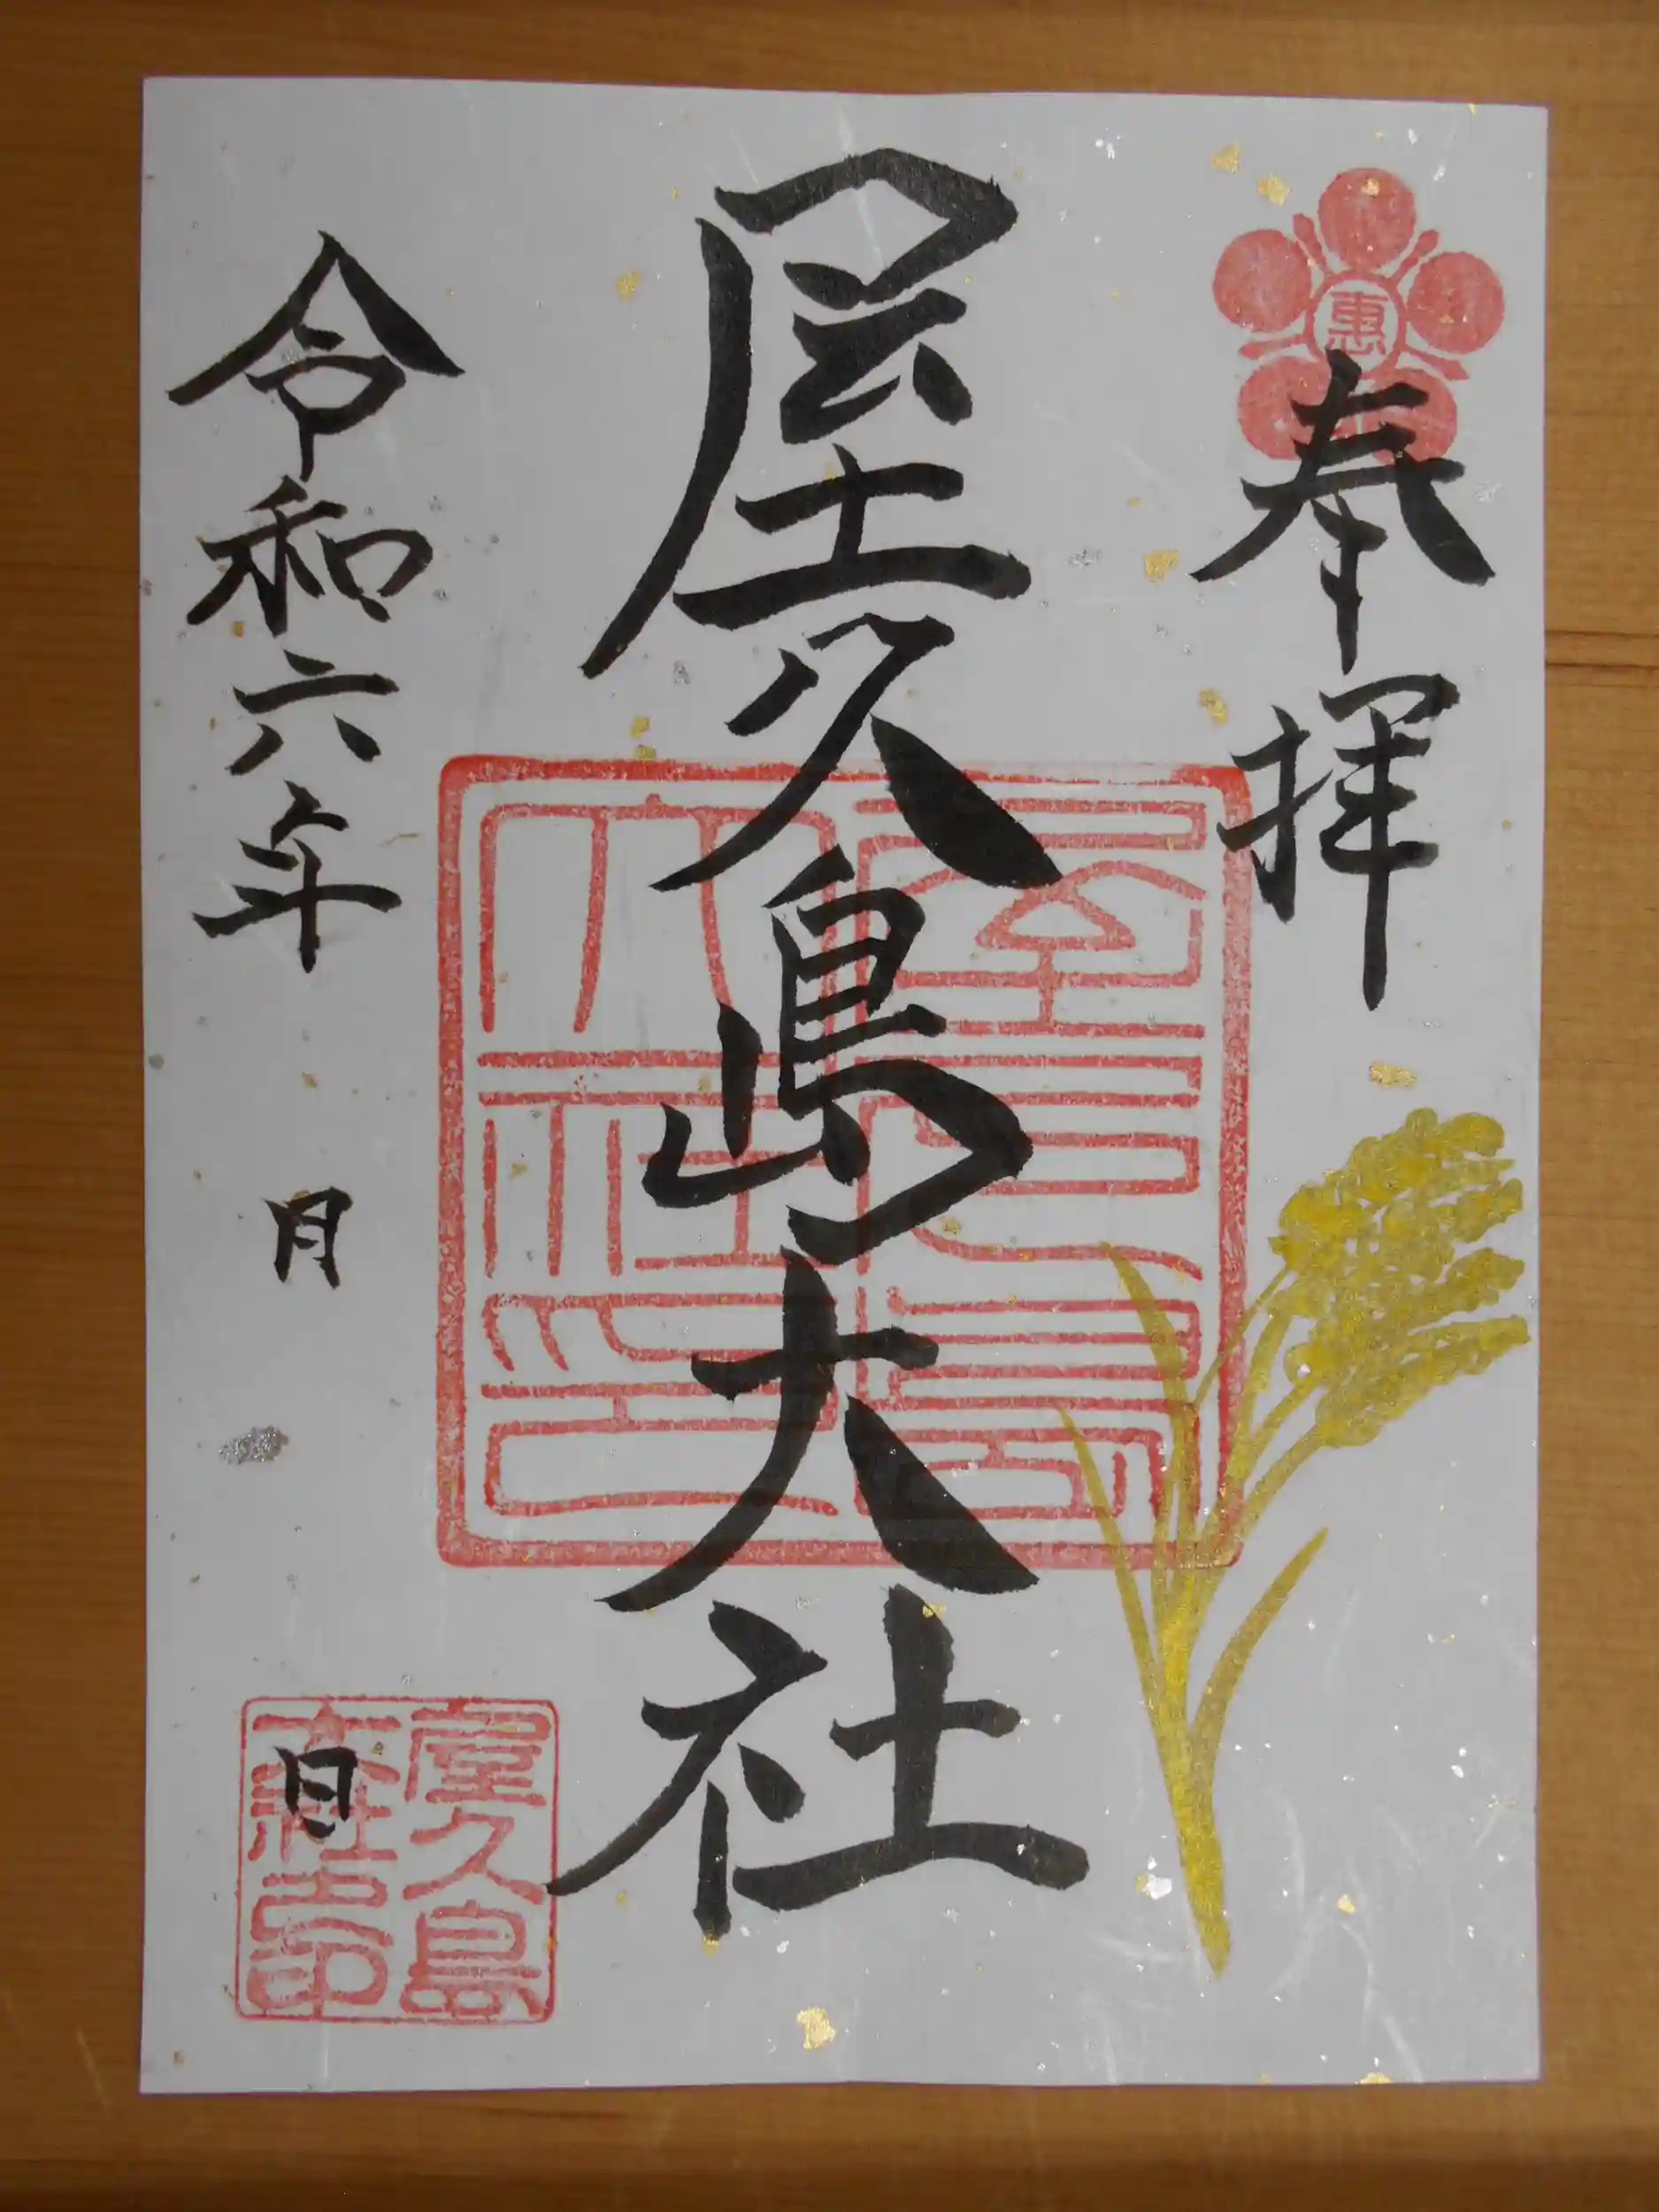 惠
奉拝
屋久島大社
屋久島
大社印
令和六年 月 日
屋久島
大社印